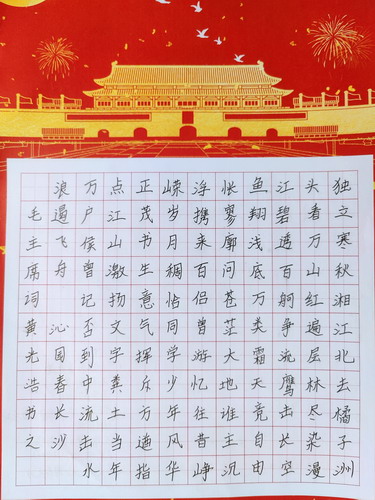 独立寒秋湘江北去橘子洲
头看万山红遍层林尽染漫
江碧透百舸争流鹰击长空
鱼翔浅底万类霜天竞自由
怅寥廓问苍茫大地谁主沉
浮携来百侣曾游忆往昔峥
嵘岁月稠恰同学少年风华
正茂书生意气挥斥方遒指
点江山激扬文字粪土当年
万户侯曾记否到中流击水
浪遏飞舟 沁园春长沙
毛主席词黄光浩书之